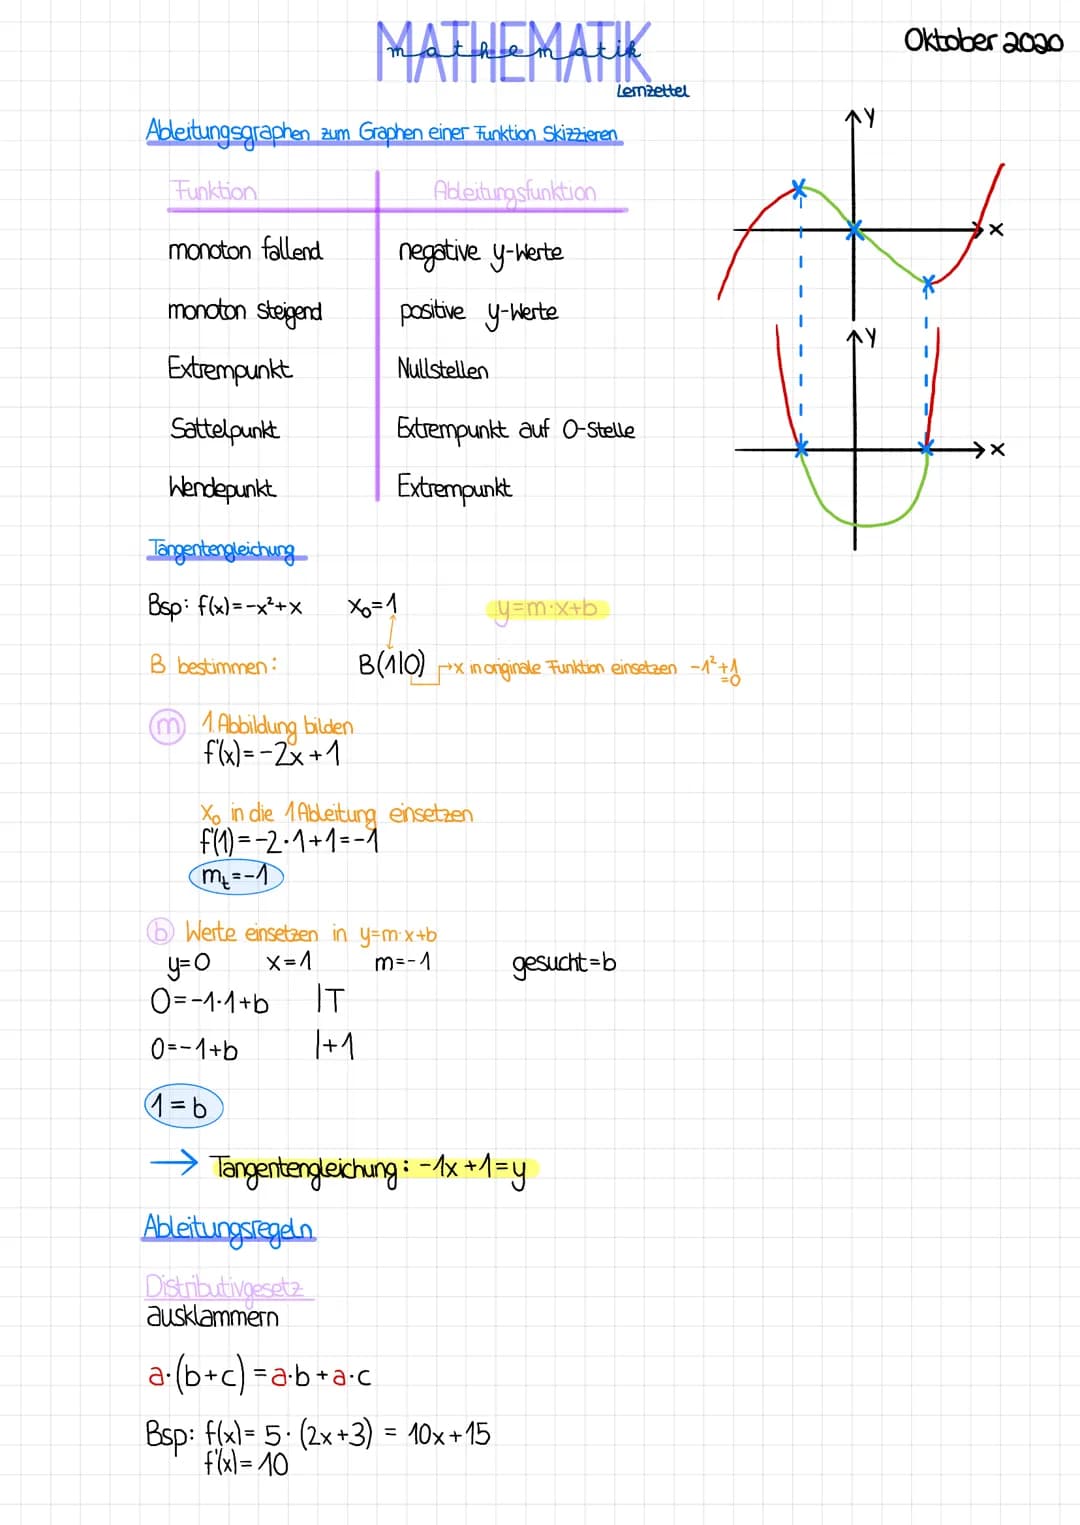 MATHEMATIK
mathematik
Lernzettel
Oktober 2020
Ableitungsgraphen zum Graphen einer Funktion Skizzieren
Funktion Ableitungsfunktion
monoton fallend negative y-Werte
monoton steigend positive y-Werte
Extrempunkt Nullstellen
Sattelpunkt Extrempunkt auf 0-Stelle
Wendepunkt Extrempunkt
y
x
y
x
Tangentengleichung
Bsp: f(x)=-x²+x x₀=1 y=m·x+b
B bestimmen: B(1|0) →x in originale Funktion einsetzen -1²+1
=0
m 1.Abbildung bilden
f'(x)=-2x+1
x₀ in die 1Ableitung einsetzen
f'(1)=-2·1+1=-1
mₜ=-1
b Werte einsetzen in y=m·x+b
y=0 x=1 m=-1 gesucht=b
0=-1·1+b |T
0=-1+b |+1
1=b
→ Tangentengleichung: -1x+1=y
Ableitungsregeln
Distributivgesetz
ausklammern
a·(b+c)=a·b+a·c
Bsp: f(x)= 5·(2x+3) = 10x+15
f'(x)=10